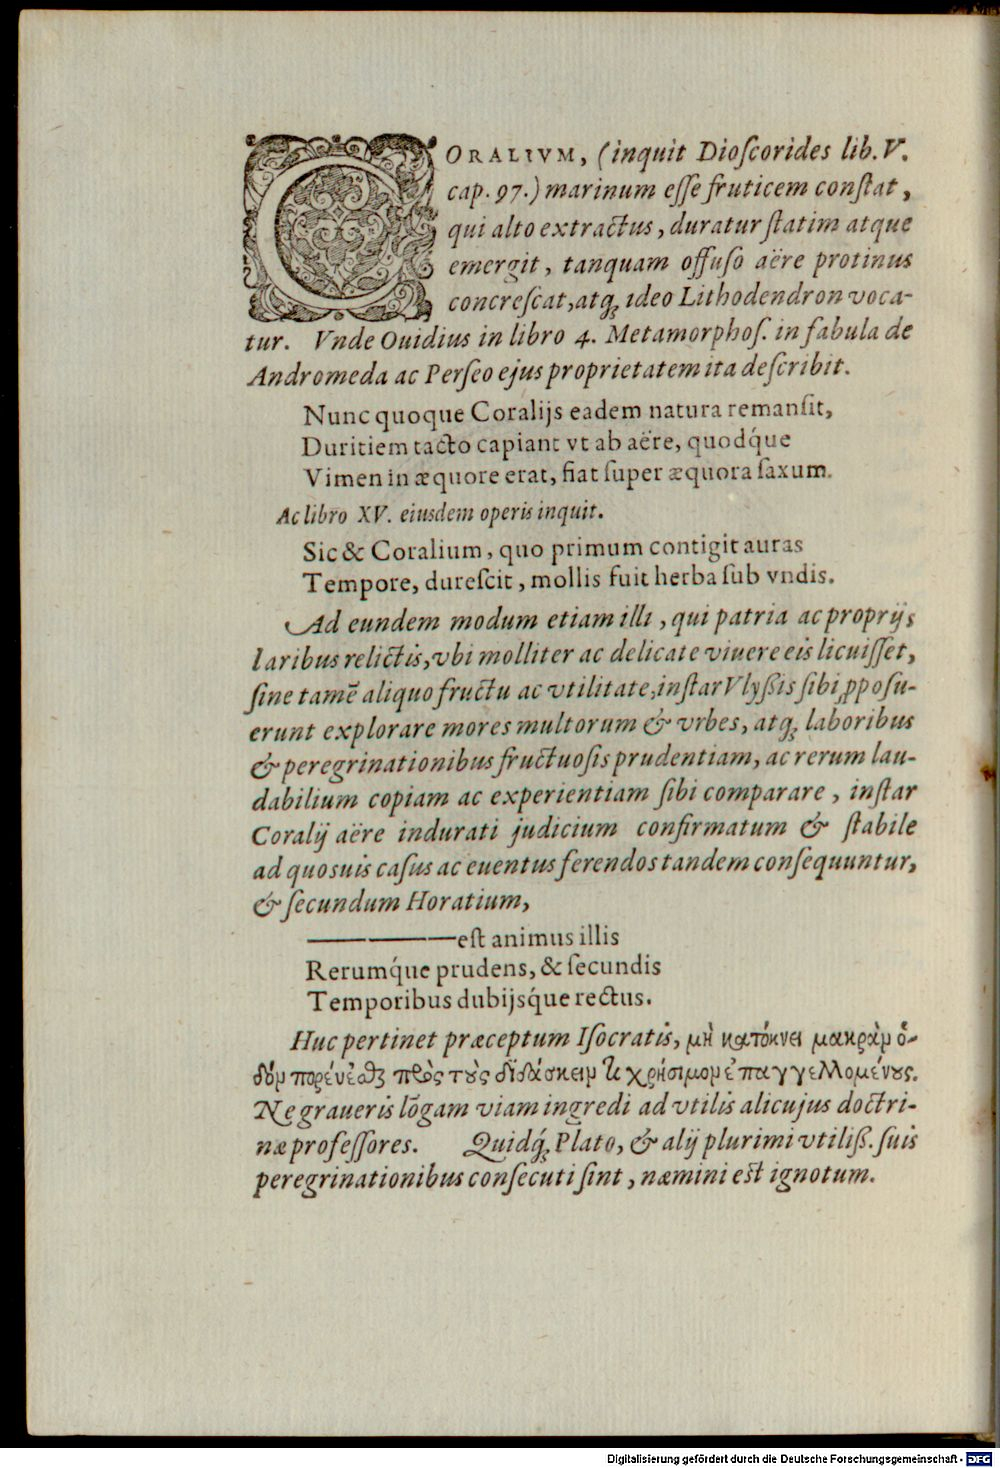 CORALIVM, (inquit Dioſcorides lib. V.
cap. 97.) marinum eſſe fruticem conſtat,
qui alto extractus, duratur ſtatim atque
emergit, tanquam offuſo aëre protinus
concreſcat, atq; ideo Lithodendron voca-
tur. Vnde Ouidius in libro 4. Metamorphoſ. in fabula de
Andromeda ac Perſeo ejus proprietatem ita deſcribit.
Nunc quoque Coralijs eadem natura remanſit,
Duritiem tacto capiant vt ab aëre, quodq́ue
Vimen in æquore erat, fiat ſuper æquora ſaxum.
Ac libro XV. eiusdem operis inquit.
Sic & Coralium, quo primum contigit auras
Tempore, dureſcit, mollis fuit herba ſub vndis.
Ad eundem modum etiam illi, qui patria ac proprijs
laribus relictis, vbi molliter ac delicate viuere eis licuiſſet,
ſine tamē aliquo fructu ac vtilitate, inſtar Vlyßis ſibi ꝓpoſu-
erunt explorare mores multorum & vrbes, atq; laboribus
& peregrinationibus fructuoſis prudentiam, ac rerum lau-
dabilium copiam ac experientiam ſibi comparare, inſtar
Coralij aëre indurati judicium confirmatum & ſtabile
ad quosuis caſus ac euentus ferendos tandem conſequuntur,
& ſecundum Horatium,
—— ——est animus illis
Rerumq́ue prudens, & ſecundis
Temporibus dubijsq́ue rectus.
Huc pertinet præceptum Iſocratis, μὴ κατόκνει μακρὰν ὁ-
δὸν πορεύεσθαι πρὸς τοὺς διδάσκειν τι χρήσιμον ἐπαγγελλομένους.
Ne graueris lōgam viam ingredi ad vtilis alicujus doctri-
næ profeſſores. Quidq́; Plato, & alij plurimi vtiliß. ſuis
peregrinationibus conſecuti ſint, næmini eſt ignotum.
Digitalisierung gefördert durch die Deutsche Forschungsgemeinschaft - DFG